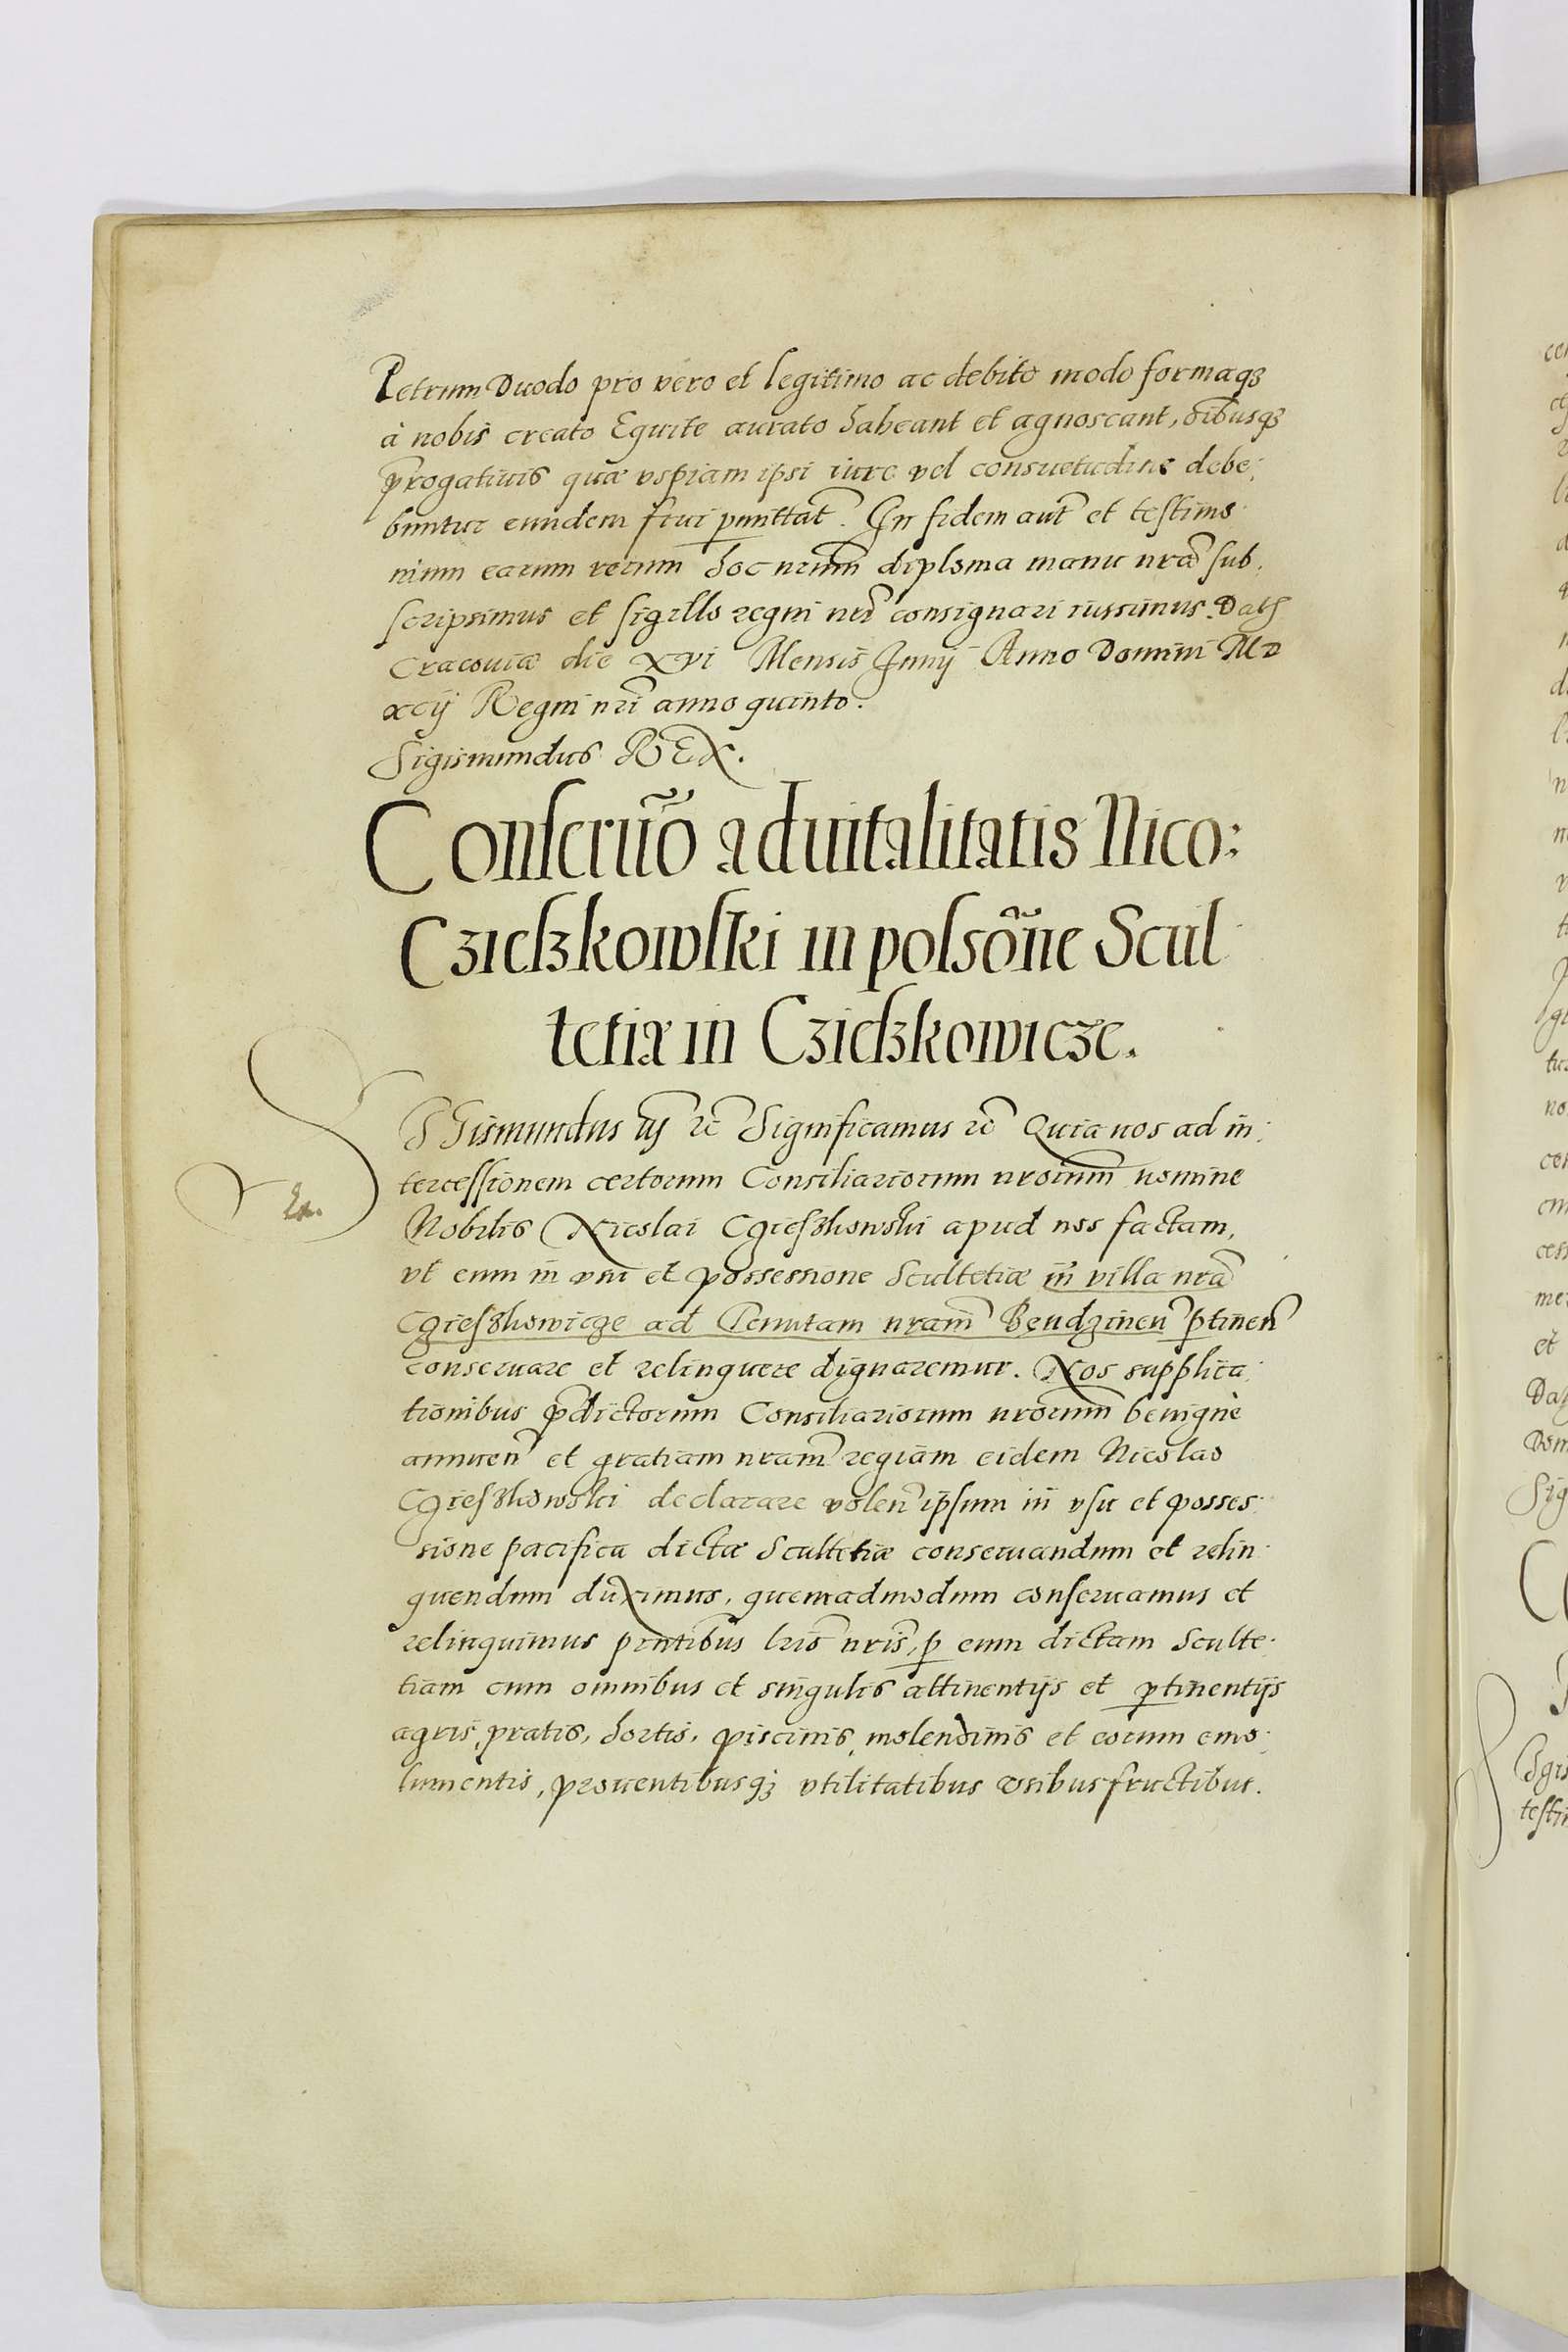 Petrum Duodo pro vero et legitimo ac debito modo formaqȝ
à nobis creato Equite aurato habeant et agnoscant, oībusqȝ
p̄rogatiuis quæ vspiam ipsi iure vel consuetudine debe:
buntur eundem frui p̱mittāt. In fidem aut̄ et testimo:
nium earum rerum hoc nrūm diploma manu nrā sub:
scripsimus et sigillo regni nrī consignari iussimus. Dat
Cracouiæ die xvi Mensis Junij Anno Domini MD
xcij Regni nrī anno quinto.
Sigismundus REX.
Conseruō aduitalitatis Nico:
Czieszkowski in possōne Scul
tetiæ in Czieszkowicze.
SIGismundus iijs rc̄ Significamus rc̄ Quia nos ad in:
tercessionem certorum Consiliariorum nrorum̄ nomine
Nobilis Nicolai Czieszkowski apud nos factam,
vt eum in vsu et possessione Scultetiæ in villa nrā
Czieszkowicze ad Tenutam nram̄ Bendzinen̄ p̱tinen̄
conseruare et relinquere dignaremur. Nos supplica:
tionibus p̄dictorum Consiliariorum nrorum̄ benignè
annuen̄ et gratiam nram̄ regiam eidem Nicolao
Czieszkowski declarare volen̄ ipsum in vsu et posses:
sione pacifica dictæ Scultetiæ conseruandum et relin:
quendum duximus, quemadmodum conseruamus et
relinquimus pn̄tibus lrīs nrīs, p̱ eum dictam Sculte:
tiam cum omnibus et singulis attinentijs et p̱tinentijs
agris, pratis, hortis, piscinis, molendinis et eorum emo:
lumentis, prouentibusqȝ vtilitatibus vsibus fructibus.